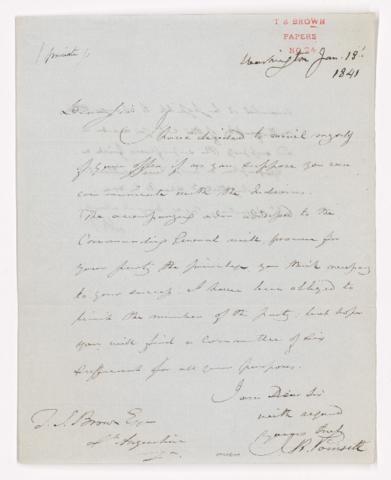 T S BROWN
PAPERS
NO. 24
(private)
Washington Jan. 18
1841
Dear Sir
I have decided to avail myself
of your offer if as you suppose you can
communicate with the Indians.
The accompanying order addressed to the
Commanding General will procure for
your party the privileges you think necessary
to your success. I have been obliged to
limit the number of the party, but hope
you will find a Committee of six
sufficient for all your purposes.
I am Dear Sir
with regard
yours truly
J. R. Poinsett
T. S. Brown Esq
St. Augustine
over